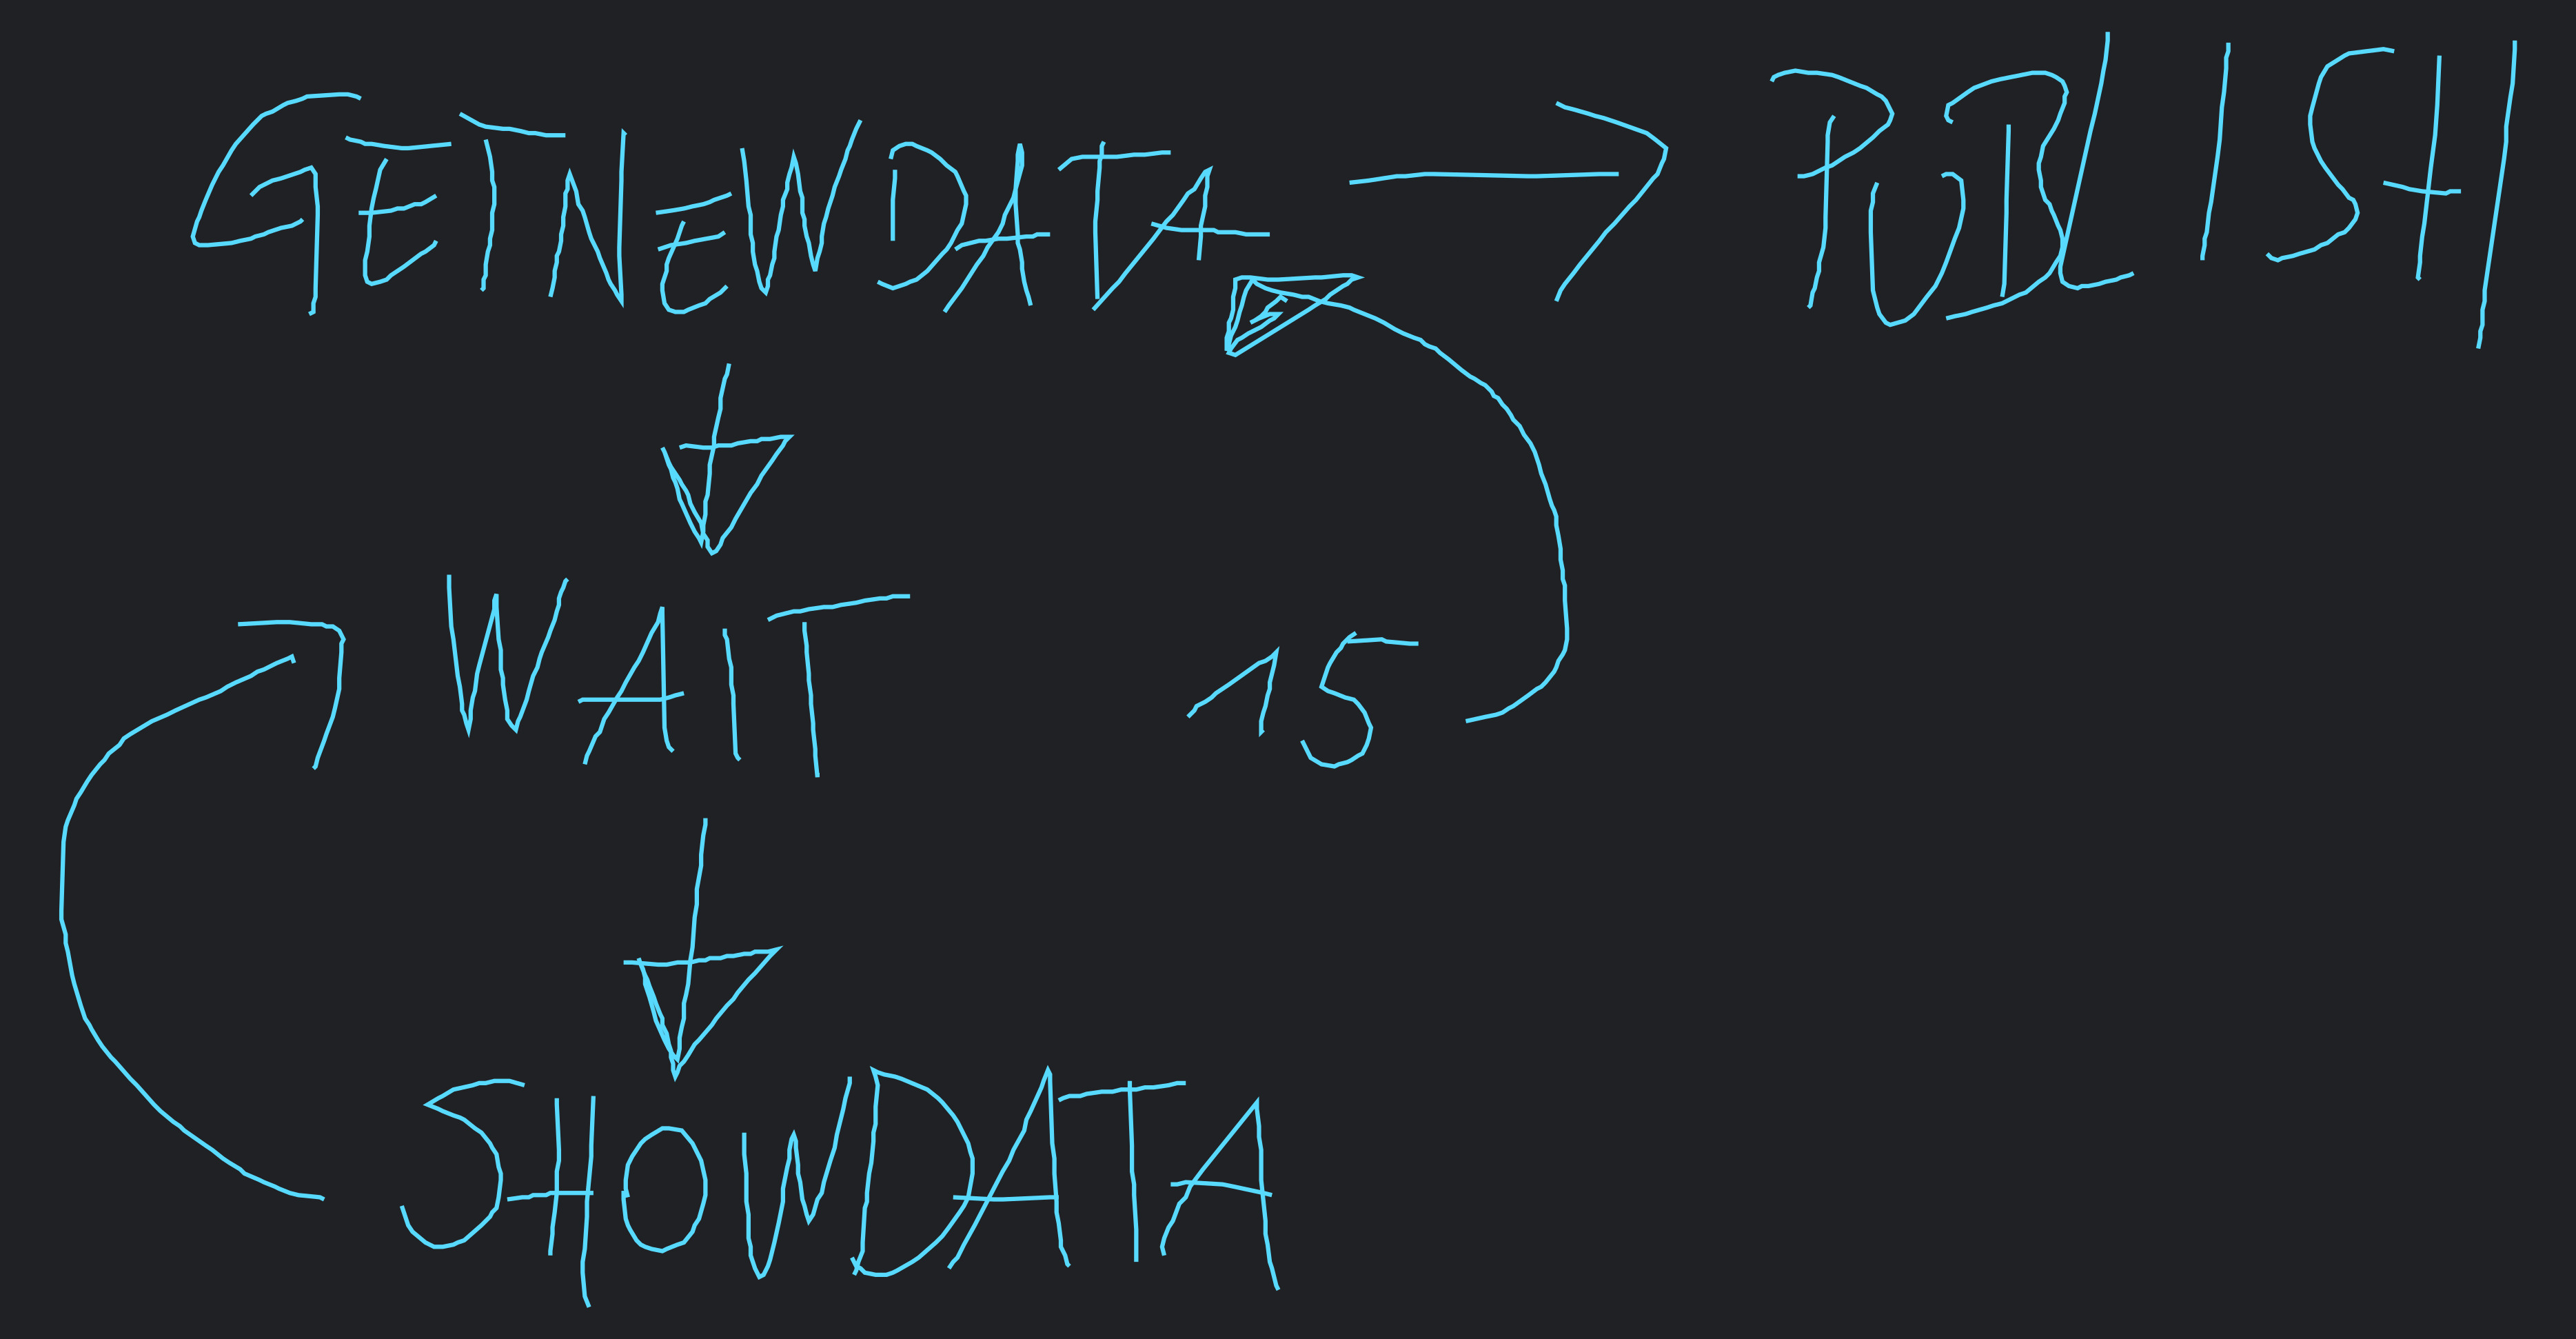 GETNEWDATA PUBLISH
WAIT 15
SHOWDATA